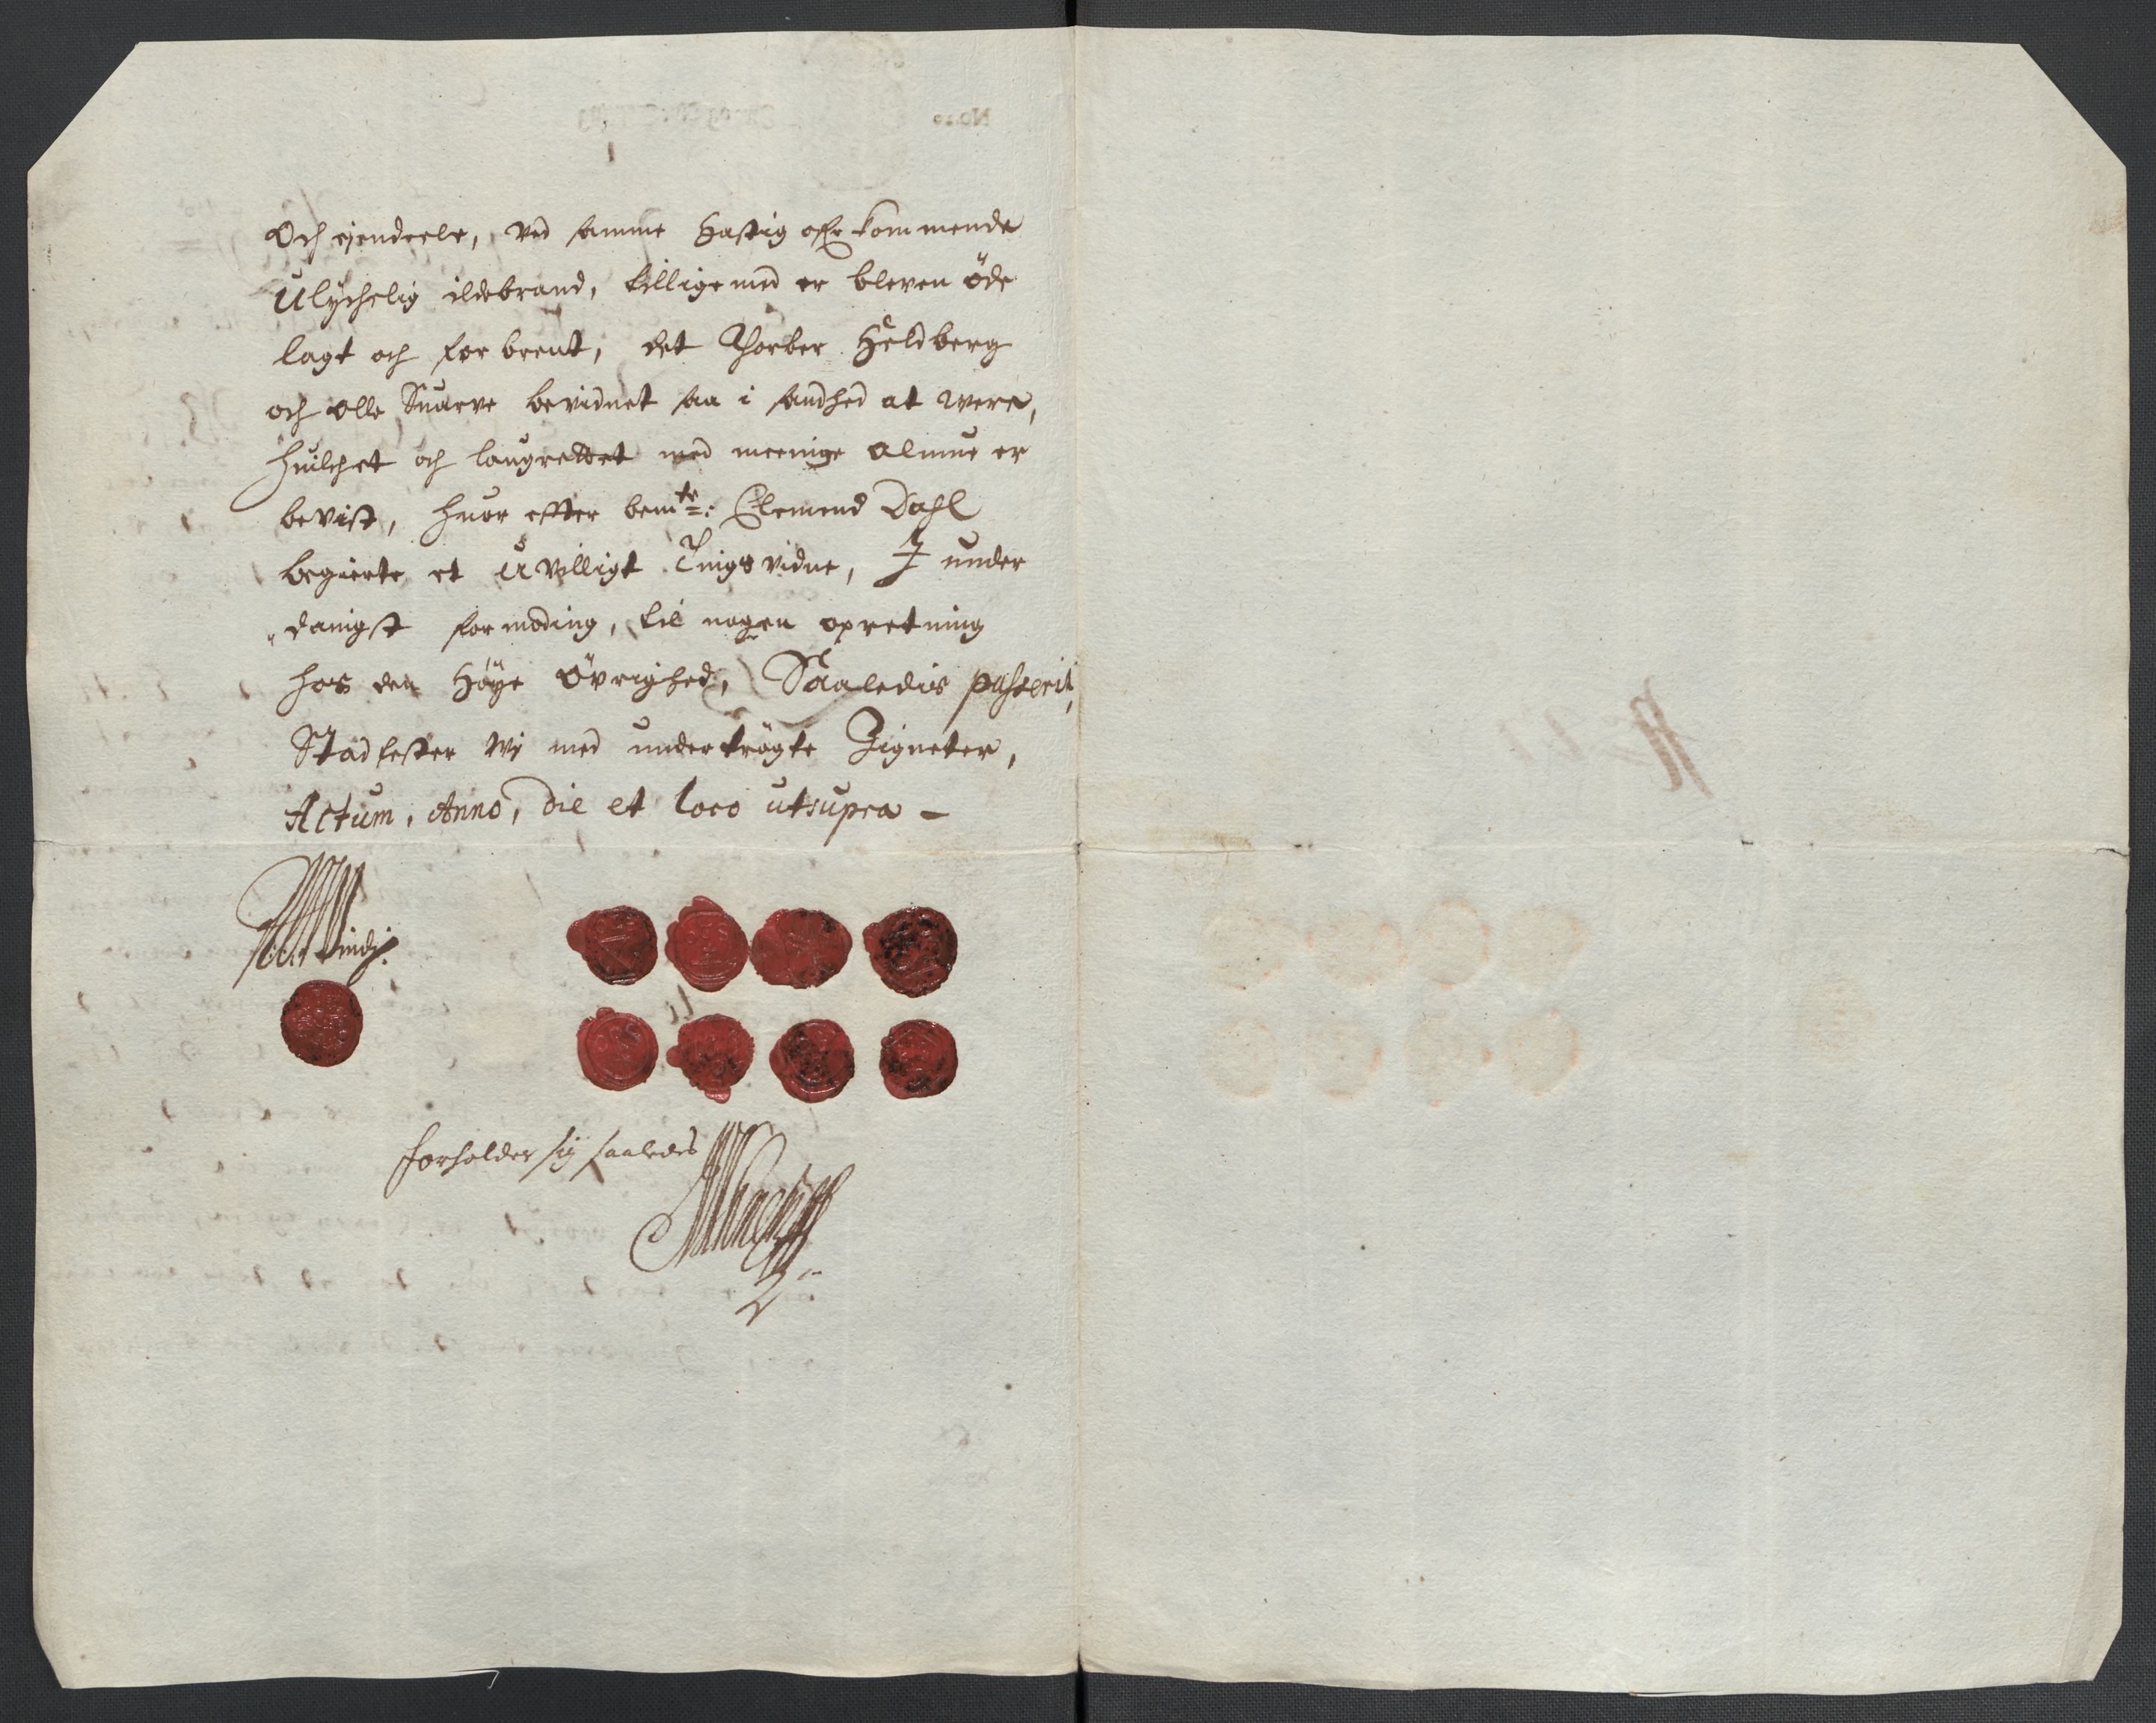 Och ejendeele, ved samme hastig ofr kommende
Ulychelig ildebrand, tillige med er bleven öde
lagt och forbrent, det Thorber Heldberg
och Olle Snarve bevidnet saa i sandhed at were,
huilchet och laugrettet med meenige Almue er
bevist, huor efter bemte: Clemend Dahl
begierte et uvilligt Tingsvidne, I under
danigst formoding, til nogen opretning
hos den Höye Övrighed, Saaledis passerit,
Stadfester Wj med undertrögte Zigneter,
Actum, Anno, die et loco utsupra -
forholder sig saaledes